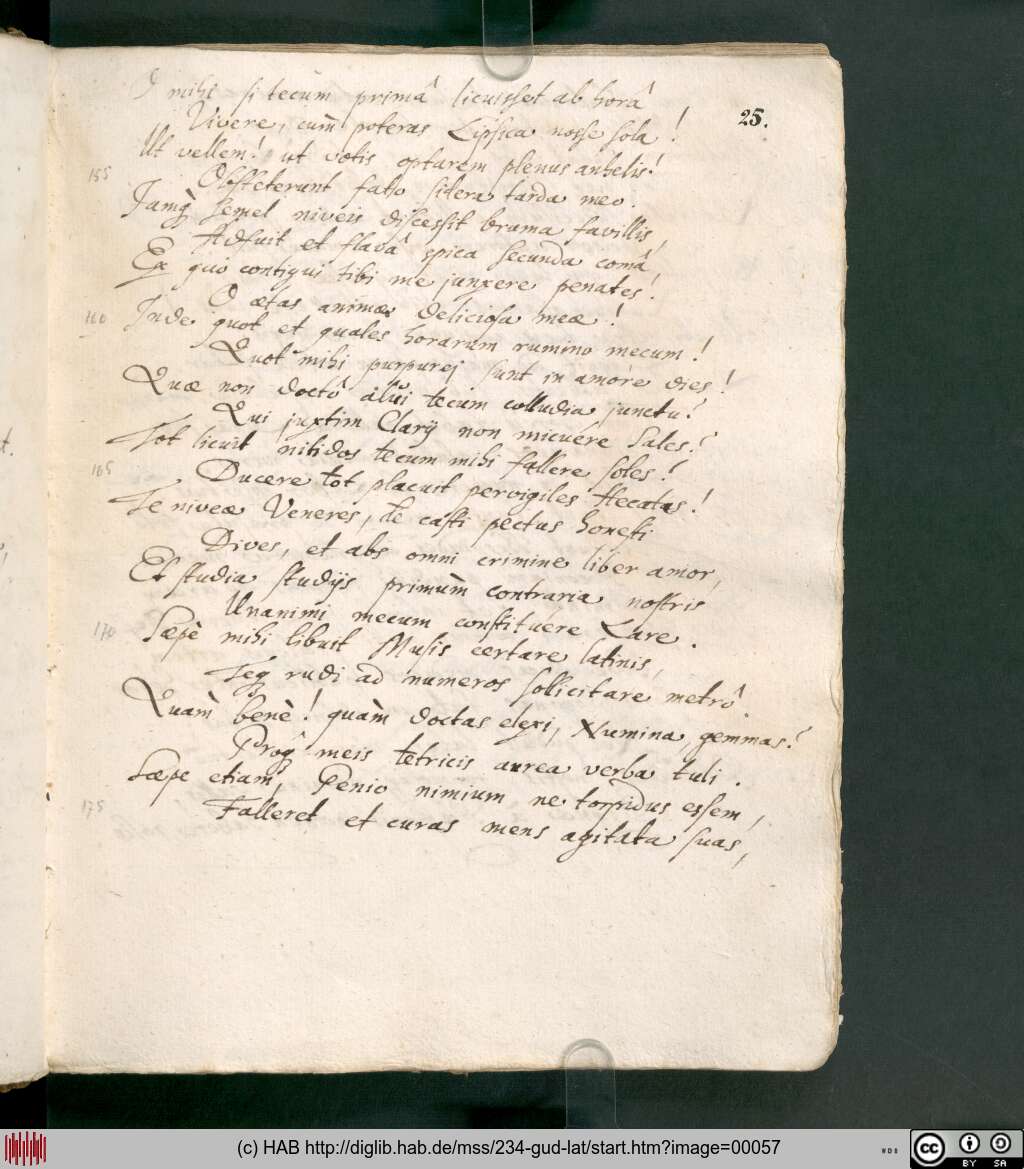 O mihi si tecum primâ licuisset ab horâ
25.
Vivere, cum̀ poteras Lipsica nosse sola!
Ut vellem! ut votis optarem plenus anhelis!
155
Obsteterunt fato sidera tarda meo.
Jamq̀ semel niveis discessit bruma favillis,
Adfuit et flavâ spica secunda comâ,
Ex quo contigui tibi me junxere penates!
O ætas animæ deliciosa meæ!
160
Inde quot et quales horarum rumino mecum!
Quot mihi purpurej sunt in amore dies!
Quæ non doctô alŭi tecum colludia junctu?
Qui juxtim Clarij non micuêre sales?
Tot licuit nitidos tecum mihi fallere soles!
165
Ducere tot placuit pervigiles Hecatas!
Te niveæ Veneres, te casti pectus honesti
Dives, et abs omni crimine liber amor,
Et studia studijs primum̀ contraria nostris
Unanimi mecum constituêre Lare.
170
Sæpè mihi libuit Musis certare latinis,
Teq rudi ad numeros sollicitare metrô.
Quam̀ benè! quàm doctas elexi, Numina, gemmas?
Proq̀ meis tetricis aurea verba tuli.
Sæpe etiam, Genio nimium ne torpidus essem,
175
Falleret et curas mens agitata suas,
(c) HAB http://diglib.hab.de/mss/234-gud-lat/start.htm?image=00057
WDB
cc
BY SA